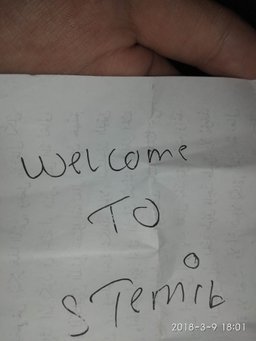 Welcome
TO
STemib
2018-3-9 18:01